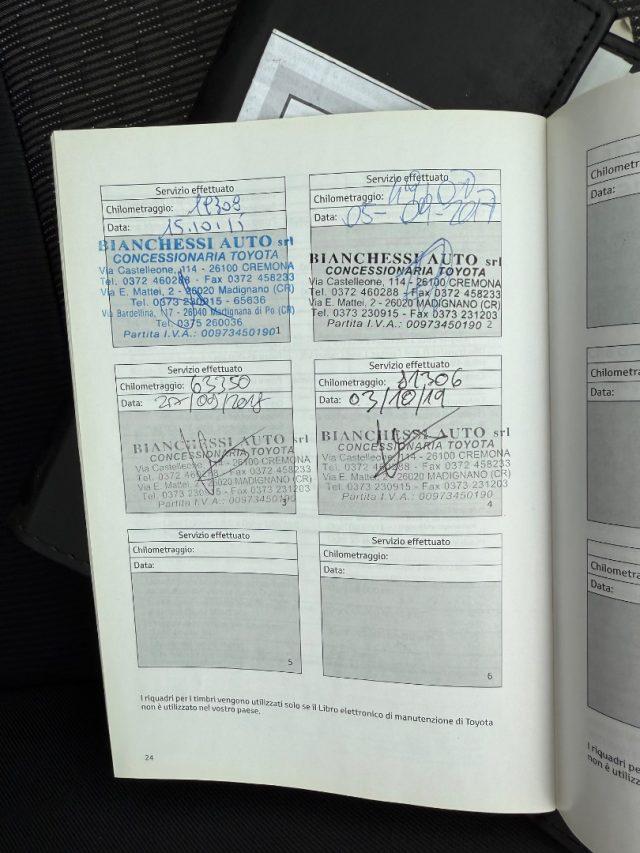 Servizio effettuato
Chilometraggio:
Data: 15.10.15
BIANCHESSI AUTO srl
CONCESSIONARIA TOYOTA
Via Castelleone, 114 - 26100 CREMONA
Tel. 0372 460288 - Fax 0372 458233
Via E. Mattei, 2 - 26020 Madignano (CR)
Tel. 0373 230915 - 65636
Via Bardellina, 117 - 26040 Madignana di Po (CR)
Tel. 0375 260036
Partita I.V.A.: 00973450190
1
Servizio effettuato
Chilometraggio:
Data: 05-09-2017
BIANCHESSI AUTO srl
CONCESSIONARIA TOYOTA
Via Castelleone, 114 - 26100 CREMONA
Tel. 0372 460288 - Fax 0372 458233
Via E. Mattei, 2 - 26020 MADIGNANO (CR)
Tel. 0373 230915 - Fax 0373 231203
Partita I.V.A.: 00973450190
2
Servizio effettuato
Chilometraggio: 63350
Data: 27/09/2018
BIANCHESSI AUTO srl
CONCESSIONARIA TOYOTA
Via Castelleone, 114 - 26100 CREMONA
Tel. 0372 460288 - Fax 0372 458233
Via E. Mattei, 2 - 26020 MADIGNANO (CR)
Tel. 0373 230915 - Fax 0373 231203
Partita I.V.A.: 00973450190
3
Servizio effettuato
Chilometraggio: 81306
Data: 03/10/19
BIANCHESSI AUTO srl
CONCESSIONARIA TOYOTA
Via Castelleone, 114 - 26100 CREMONA
Tel. 0372 460288 - Fax 0372 458233
Via E. Mattei, 2 - 26020 MADIGNANO (CR)
Tel. 0373 230915 - Fax 0373 231203
Partita I.V.A.: 00973450190
4
Servizio effettuato
Chilometraggio:
Data:
5
Servizio effettuato
Chilometraggio:
Data:
6
I riquadri per i timbri vengono utilizzati solo se il Libro elettronico di manutenzione di Toyota
non è utilizzato nel vostro paese.
24
Chilometra
Data:
Chilometra
Data:
Chilometra
Data:
I riquadri pe
non è utilizz